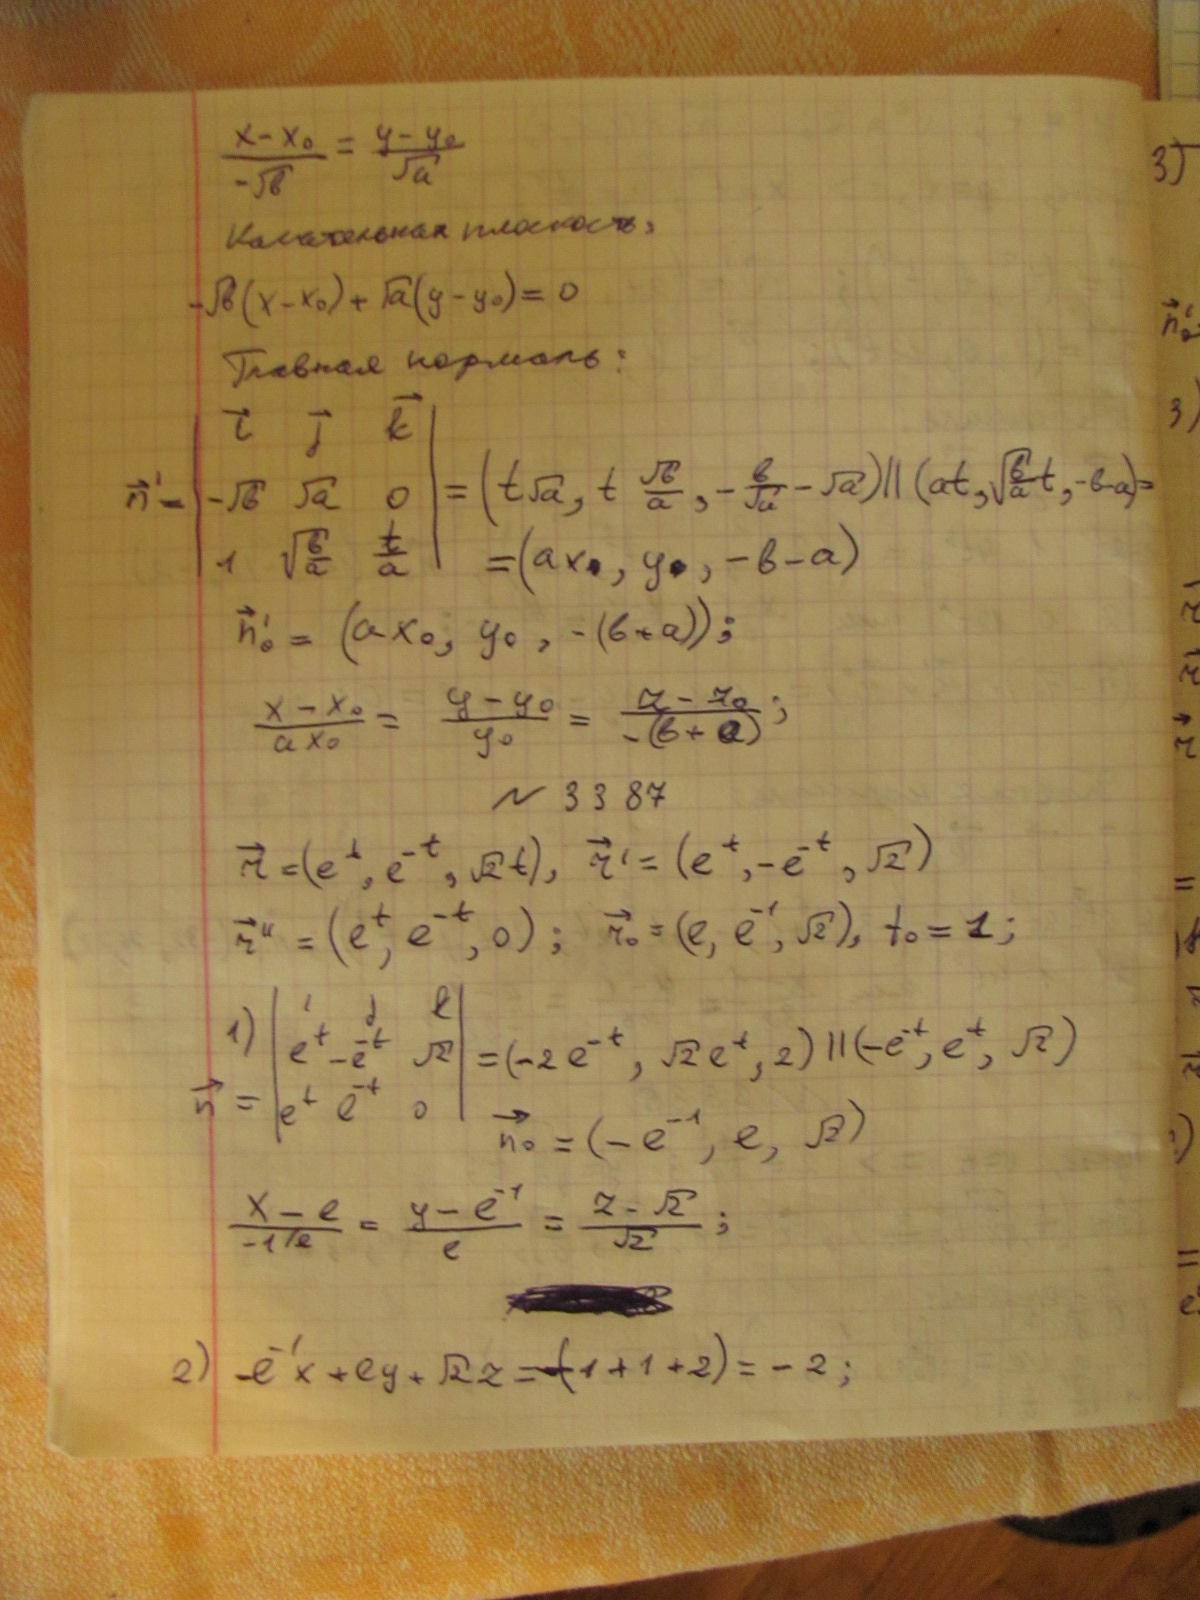 (x-x₀)/(-√в) = (y-y₀)/√a
Касательная плоскость:
-√в(x-x₀)+√a(y-y₀)=0
Главная нормаль:
n⃗' = | i⃗ j⃗ k⃗ ; -√в √a 0 ; 1 √(в/a) t/a | = (t√a, t √в/a, -в/√a - √a) || (at, √(в/a)t, -в-a) =
=(ax₀, y₀, -в-a)
n⃗₀' = (ax₀, y₀, -(в+a));
(x-x₀)/(ax₀) = (y-y₀)/y₀ = (z-z₀)/(-(в+a));
№ 3387
r⃗ =(eᵗ, e⁻ᵗ, √2t), r⃗' = (eᵗ, -e⁻ᵗ, √2)
r⃗'' = (eᵗ, e⁻ᵗ, 0); r⃗₀ = (e, e⁻¹, √2), t₀ = 1;
1) n⃗ = | i j k ; eᵗ -e⁻ᵗ √2 ; eᵗ e⁻ᵗ 0 | = (-2e⁻ᵗ, √2eᵗ, 2) || (-e⁻ᵗ, eᵗ, √2)
n⃗₀ = (-e⁻¹, e, √2)
(x-e)/(-1/e) = (y-e⁻¹)/e = (z-√2)/√2;
2) -e⁻¹x+ey+√2z=-(-1+1+2)=-2;
3)
n⃗₀'
3)
r⃗
r⃗
r⃗
=
=